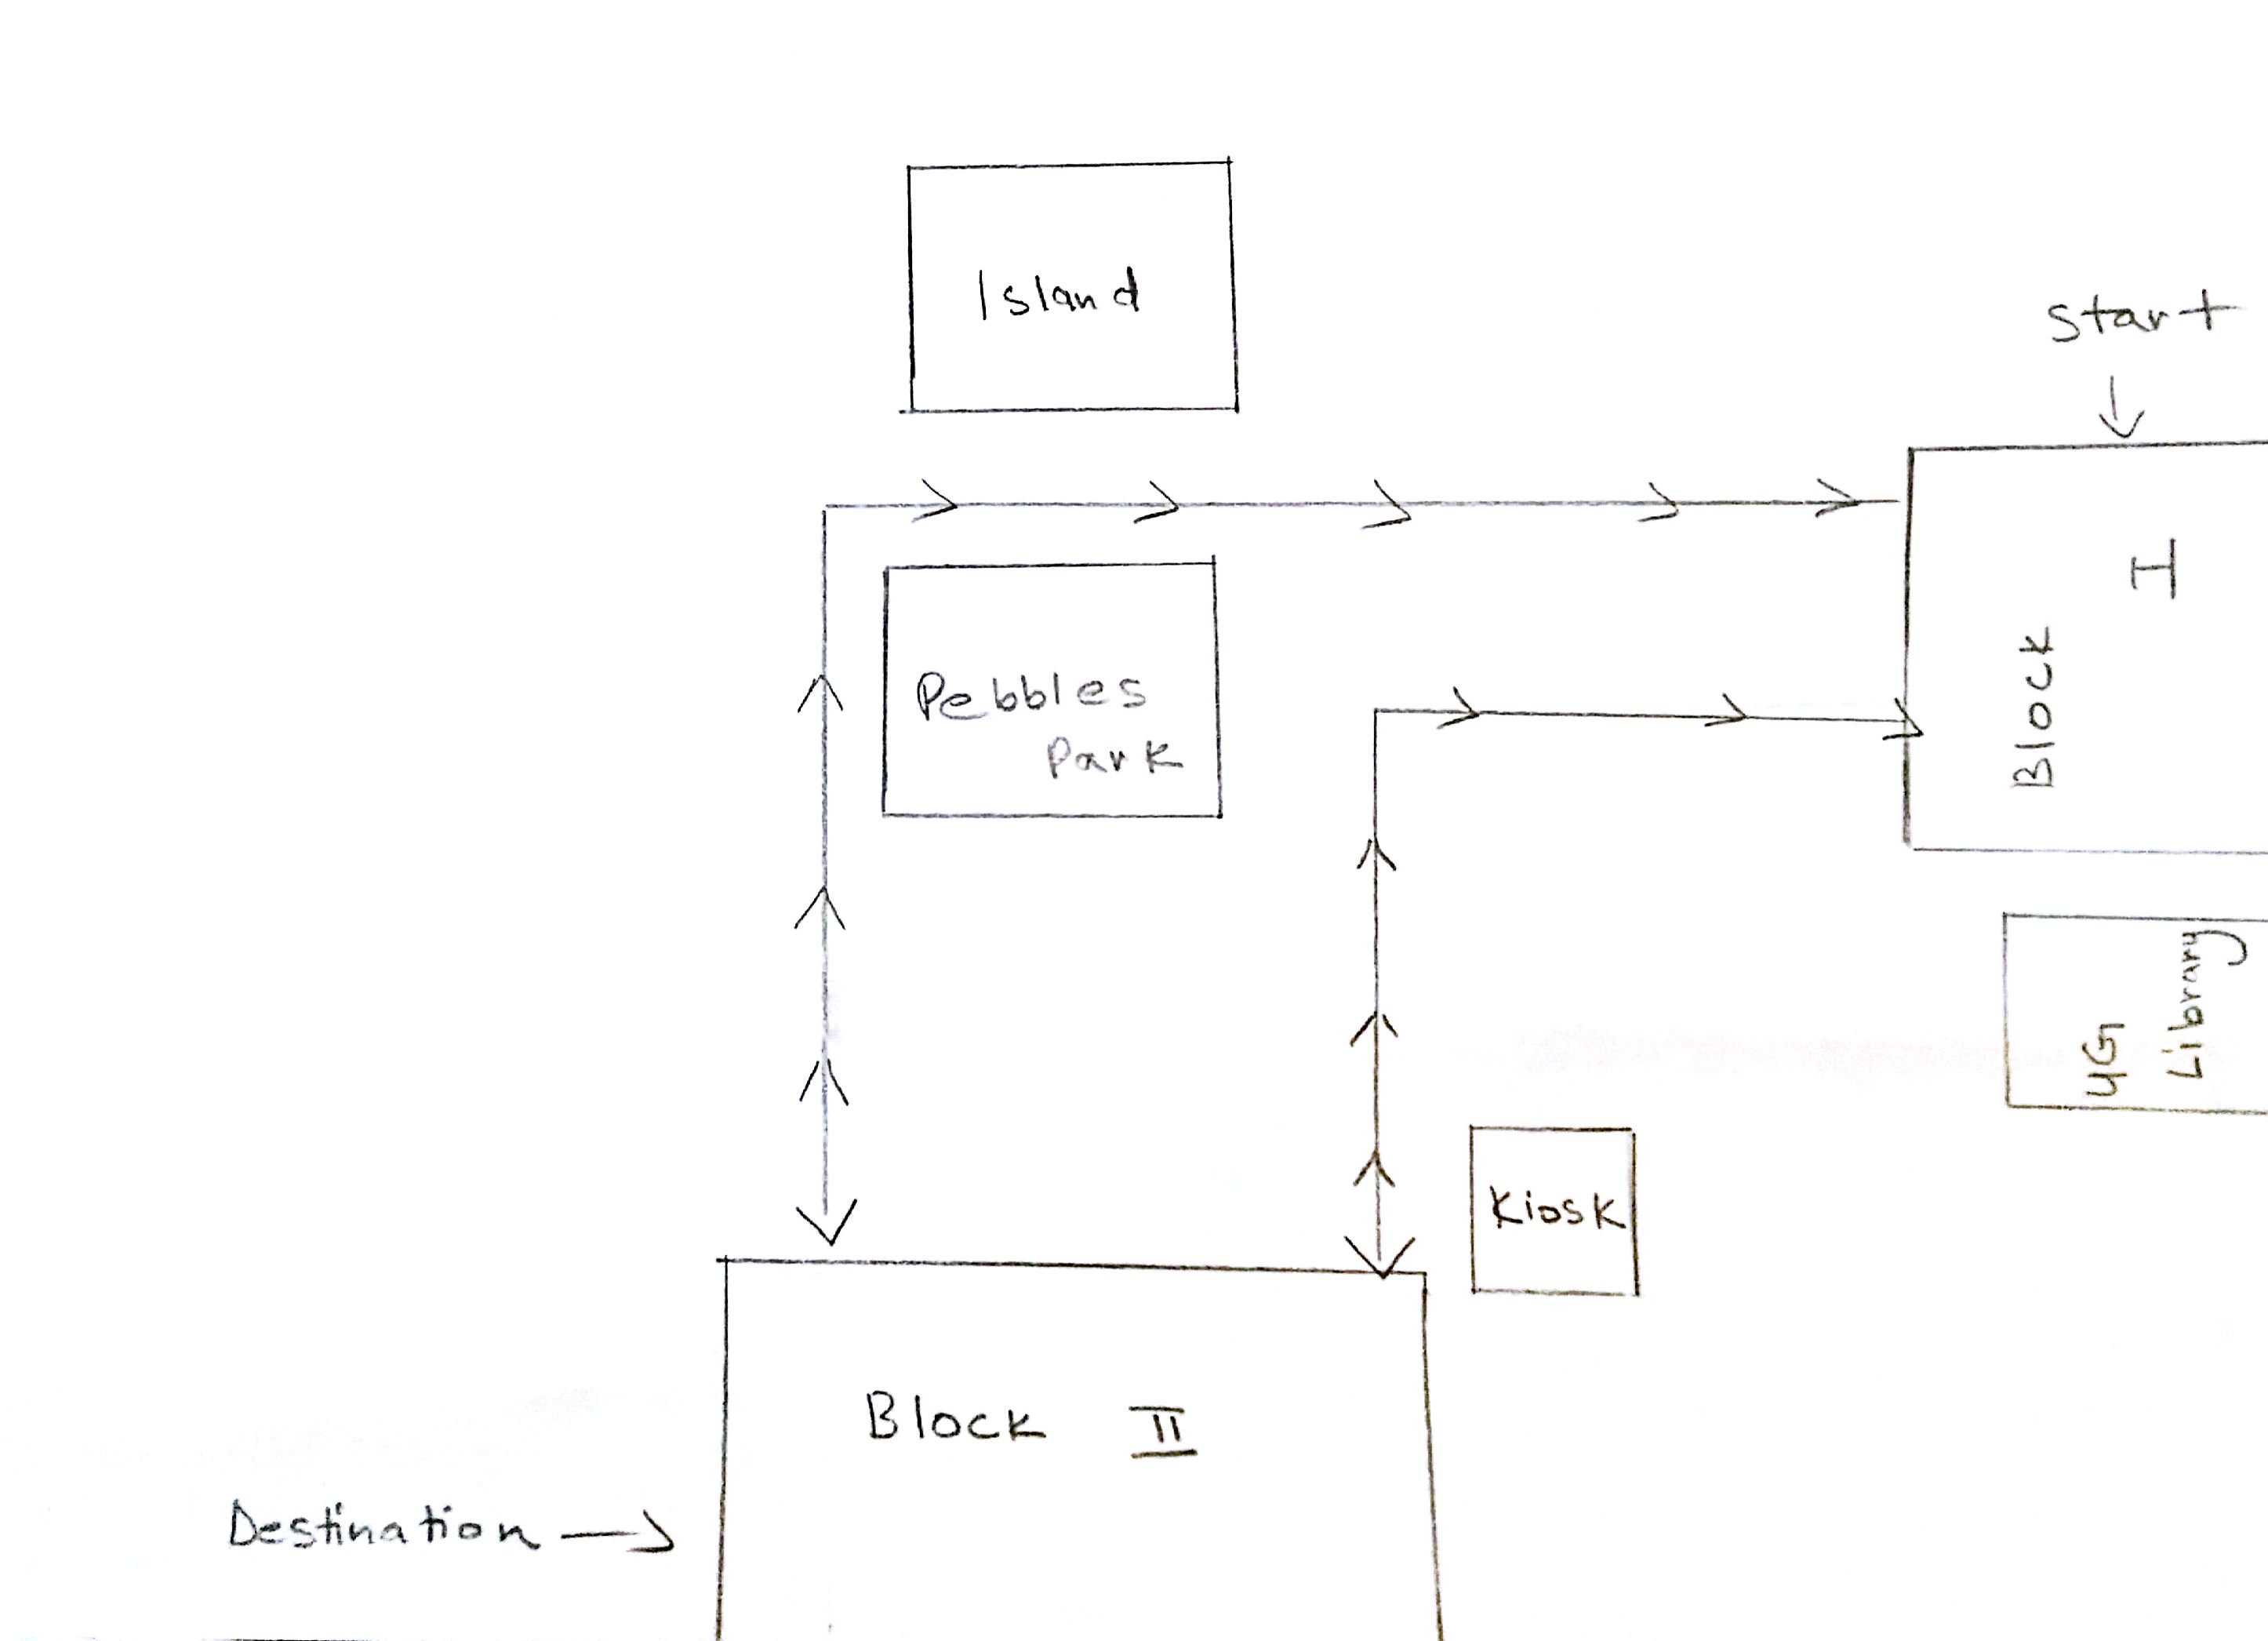 Island
Start
I
Block
Pebbles
Park
UG
Library
Kiosk
Block II
Destination